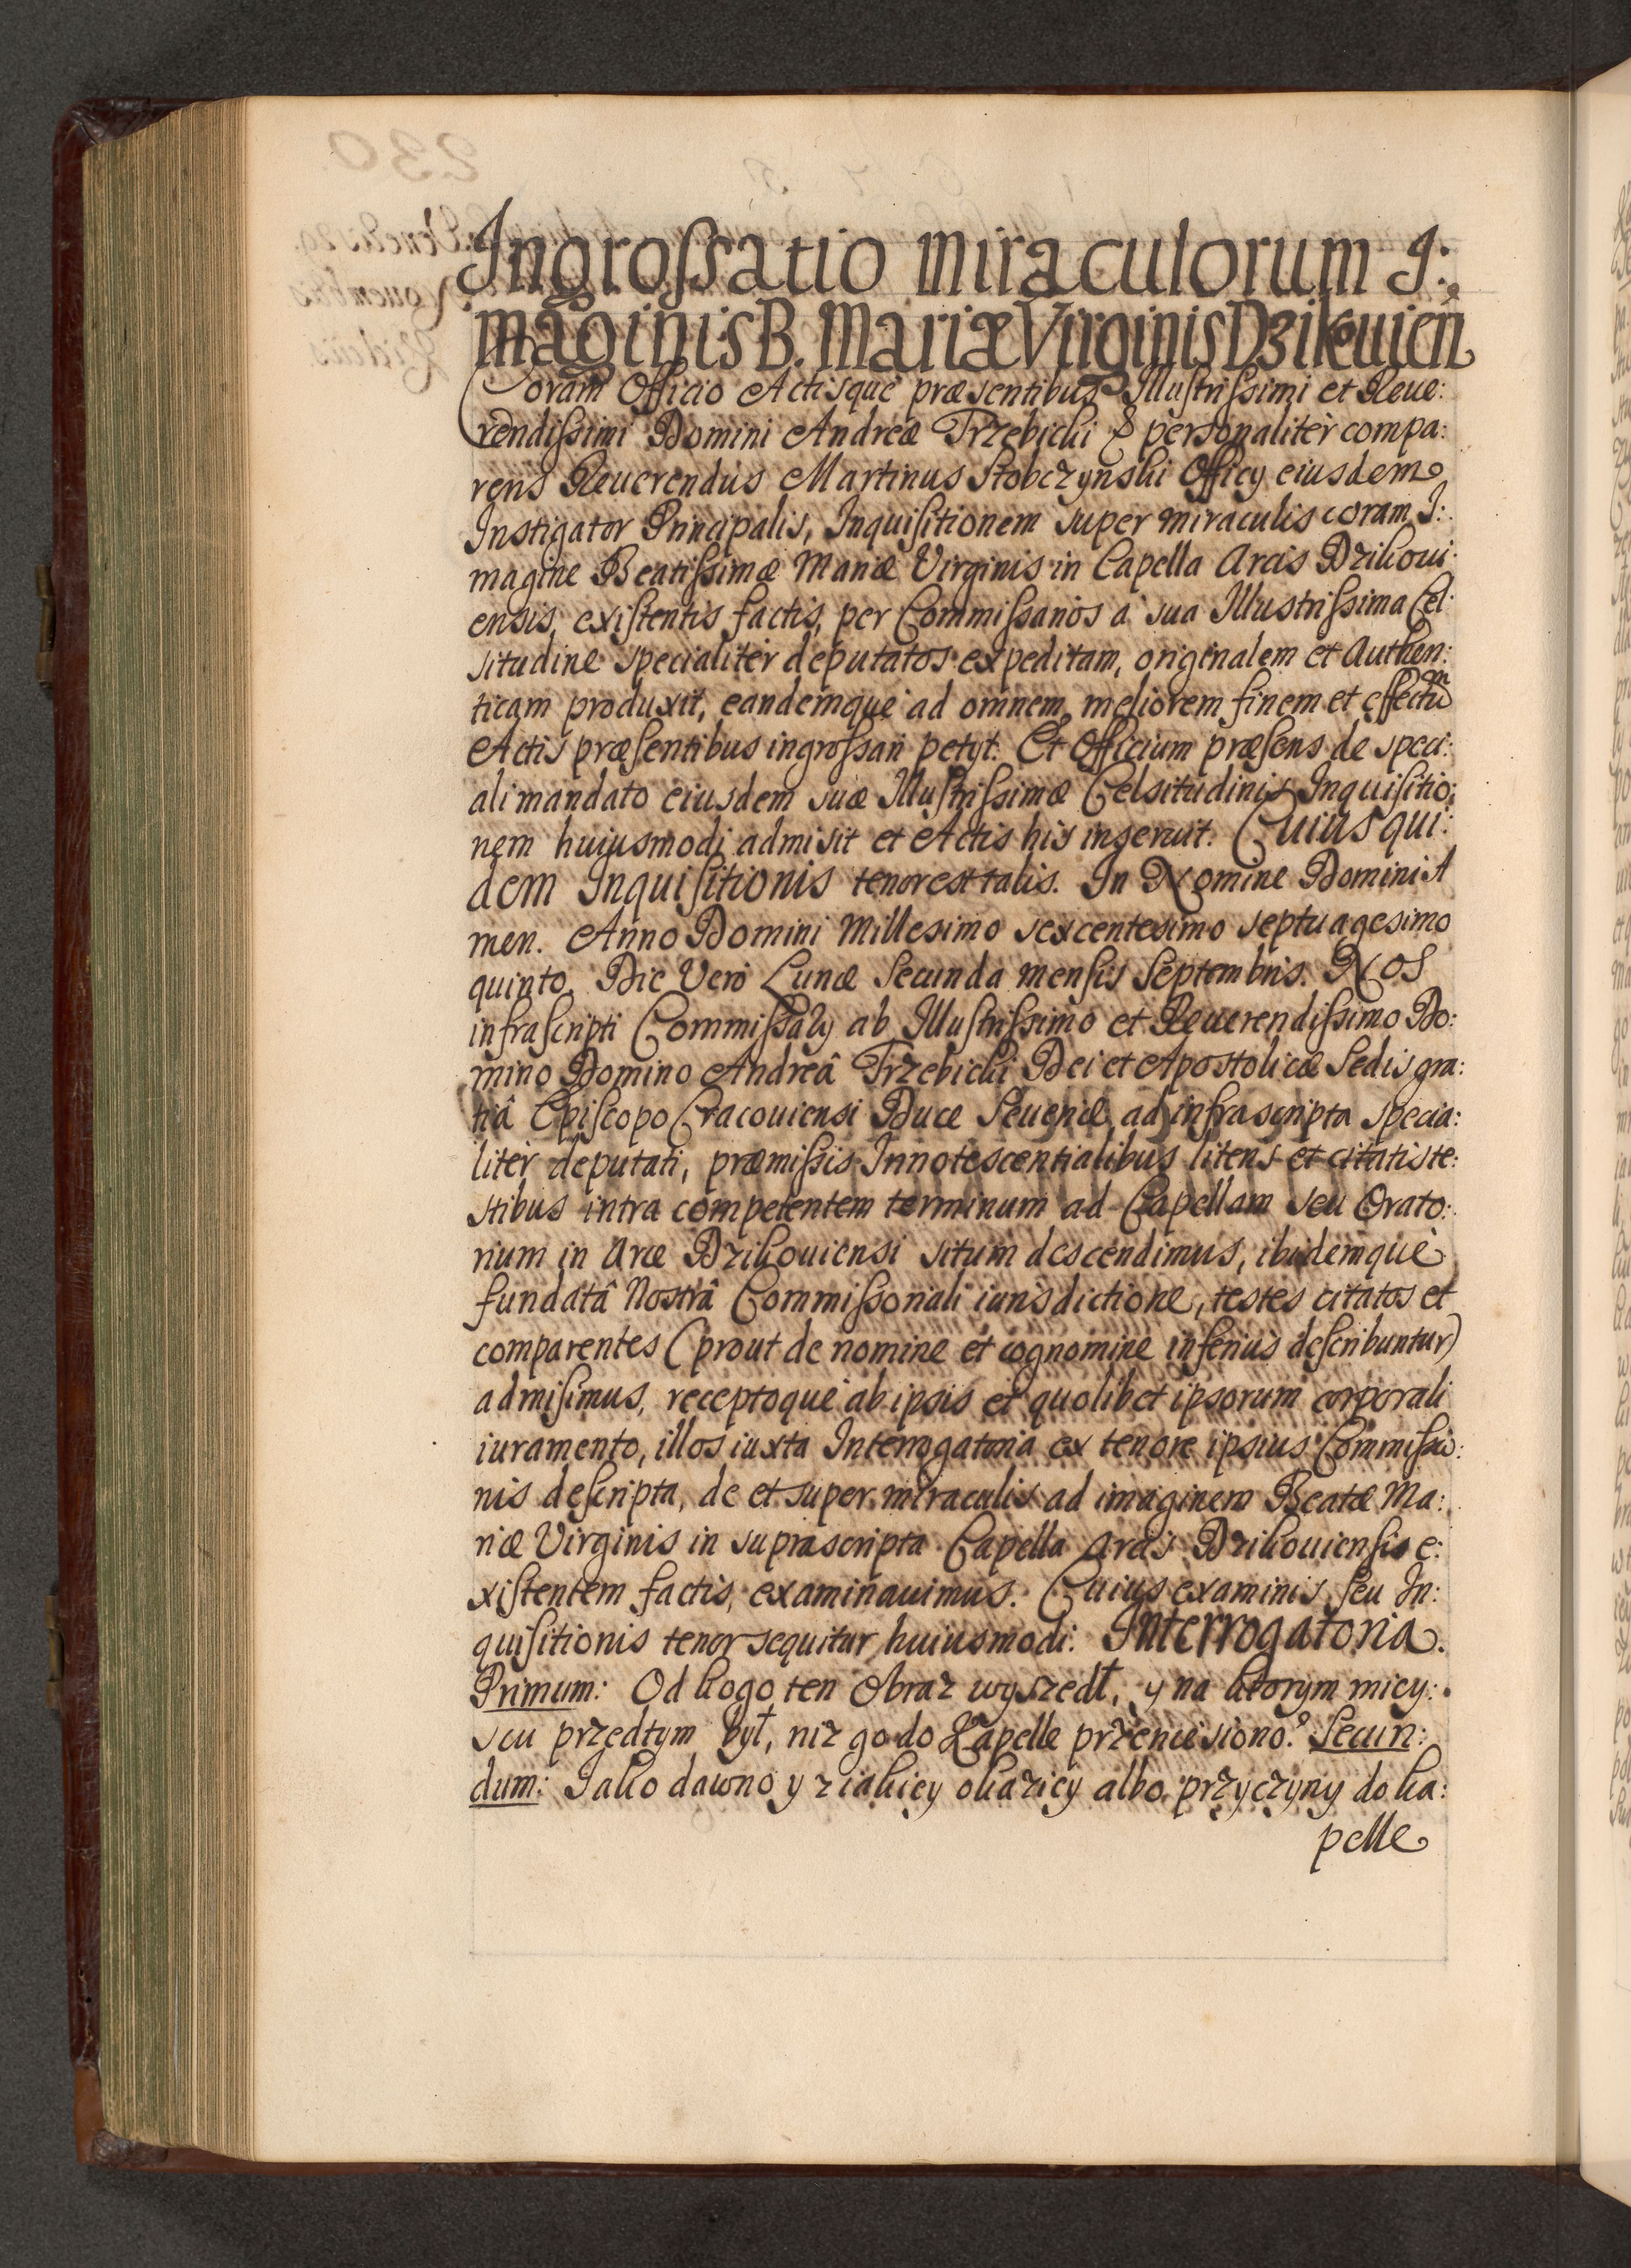 Ingrossatio miraculorum I:
maginis B. Mariæ Virginis Dzikouień
Coram Officio Actisque præsentibus Illustrissimi et Reue:
rendissimi Domini Andreæ Trzebicki & personaliter compa:
rens Reuerendus Martinus Stobczynski Officy eiusdem
Instigator Principalis, Inquisitionem super miraculis coram I:
magine Beatissimæ Mariæ Virginis in Capella Arcis Dzikoui:
ensis, existentis factis, per Commissarios à sua Illustrissima Cel:
situdine specialiter deputatos expeditam, originalem et Authen:
ticam produxit, eandemque ad omnem meliorem finem et effectum
Actis præsentibus ingrossari petyt. Et Officium præsens de speci:
ali mandato eiusdem suæ Illustrissimæ Celsitudinis Inquisitio:
nem huiusmodi admisit et Actis his inseruit. Cuius qui:
dem Inquisitionis tenor est talis. In Nomine Domini A
men. Anno Domini Millesimo sexcentesimo septuagesimo
quinto. Die Verò Lunæ Secunda mensis Septembris. Nos
infrascripti Commissarÿ ab Illustrissimo et Reuerendissimo Do:
mino Domino Andreâ Trzebicki Dei et Apostolicæ Sedis gra:
tiâ Episcopo Cracouiensi Duce Seueriæ, ad infrascripta specia:
liter deputati, præmissis Innotescentialibus literis et citatis te:
stibus intra competentem terminum ad Capellam seu Orato:
rium in Arce Dzikouiensi situm descendimus, ibidemque
fundatâ Nostrâ Commissoriali iurisdictione, testes citatos et
comparentes (prout de nomine et cognomine inferius describuntur)
admisimus, receptoque ab ipsis et quolibet ipsorum corporali
iuramento, illos iuxta Interrogatoria ex tenore ipsius Commissio:
nis descripta, de et super miraculis ad imaginem Beatæ Ma:
riæ Virginis in suprascripta Capella Arcis Dzikouiensis e:
xistentem factis, examinauimus. Cuius examinis seu In:
quisitionis tenor sequitur huiusmodi. Interrogatoria.
Primum: Od kogo ten Obraz wyszedł, y na ktorym miey:
scu przedtym był, niz go do Kapelle przeniesiono? Secun:
dum: Iako dawno y z iakiey okaziey albo przyczyny do ka:
pelle